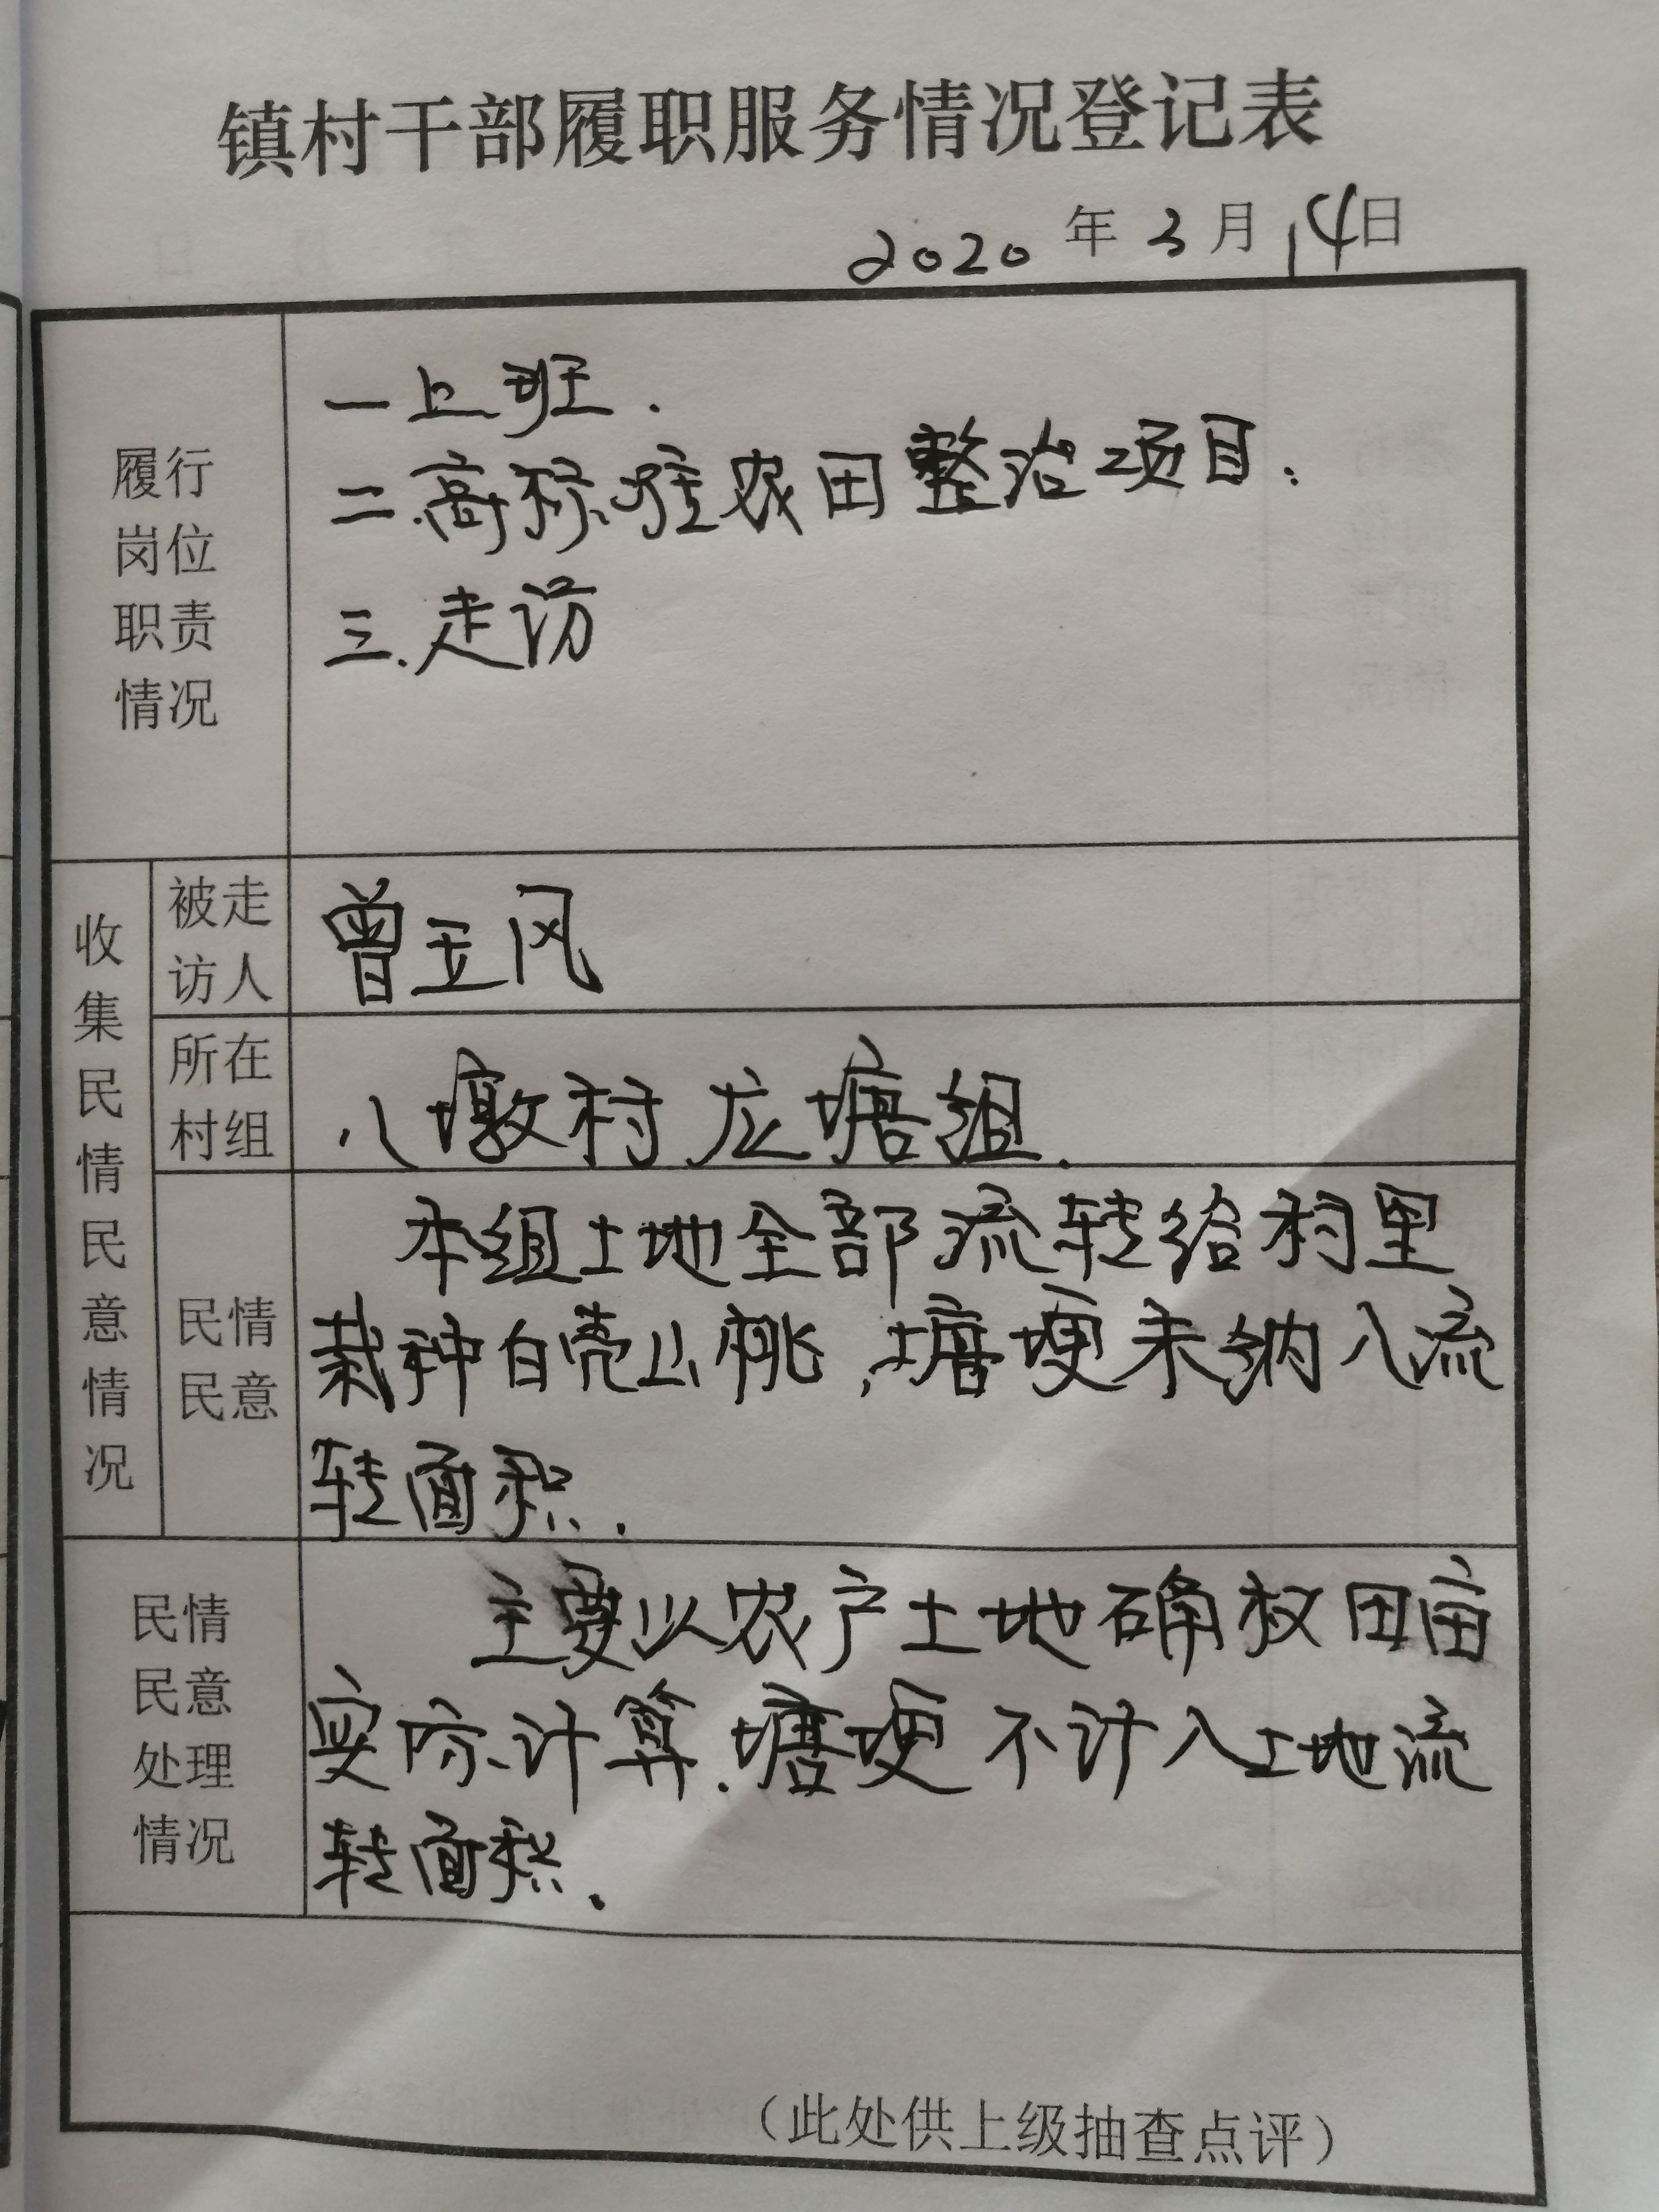 镇村干部履职服务情况登记表
2020年3月14日
履行
岗位
职责
情况
一上班.
二.高标准农田整治项目:
三.走访
收集民情民意情况
被走
访人
曾玉风
所在
村组
八墩村龙塘组.
民情
民意
本组土地全部流转给村里
栽种白壳山桃,塘埂未纳入流
转面积.
民情
民意
处理
情况
主要以农户土地确权田亩
实际计算.塘埂不计入土地流
转面积.
(此处供上级抽查点评)